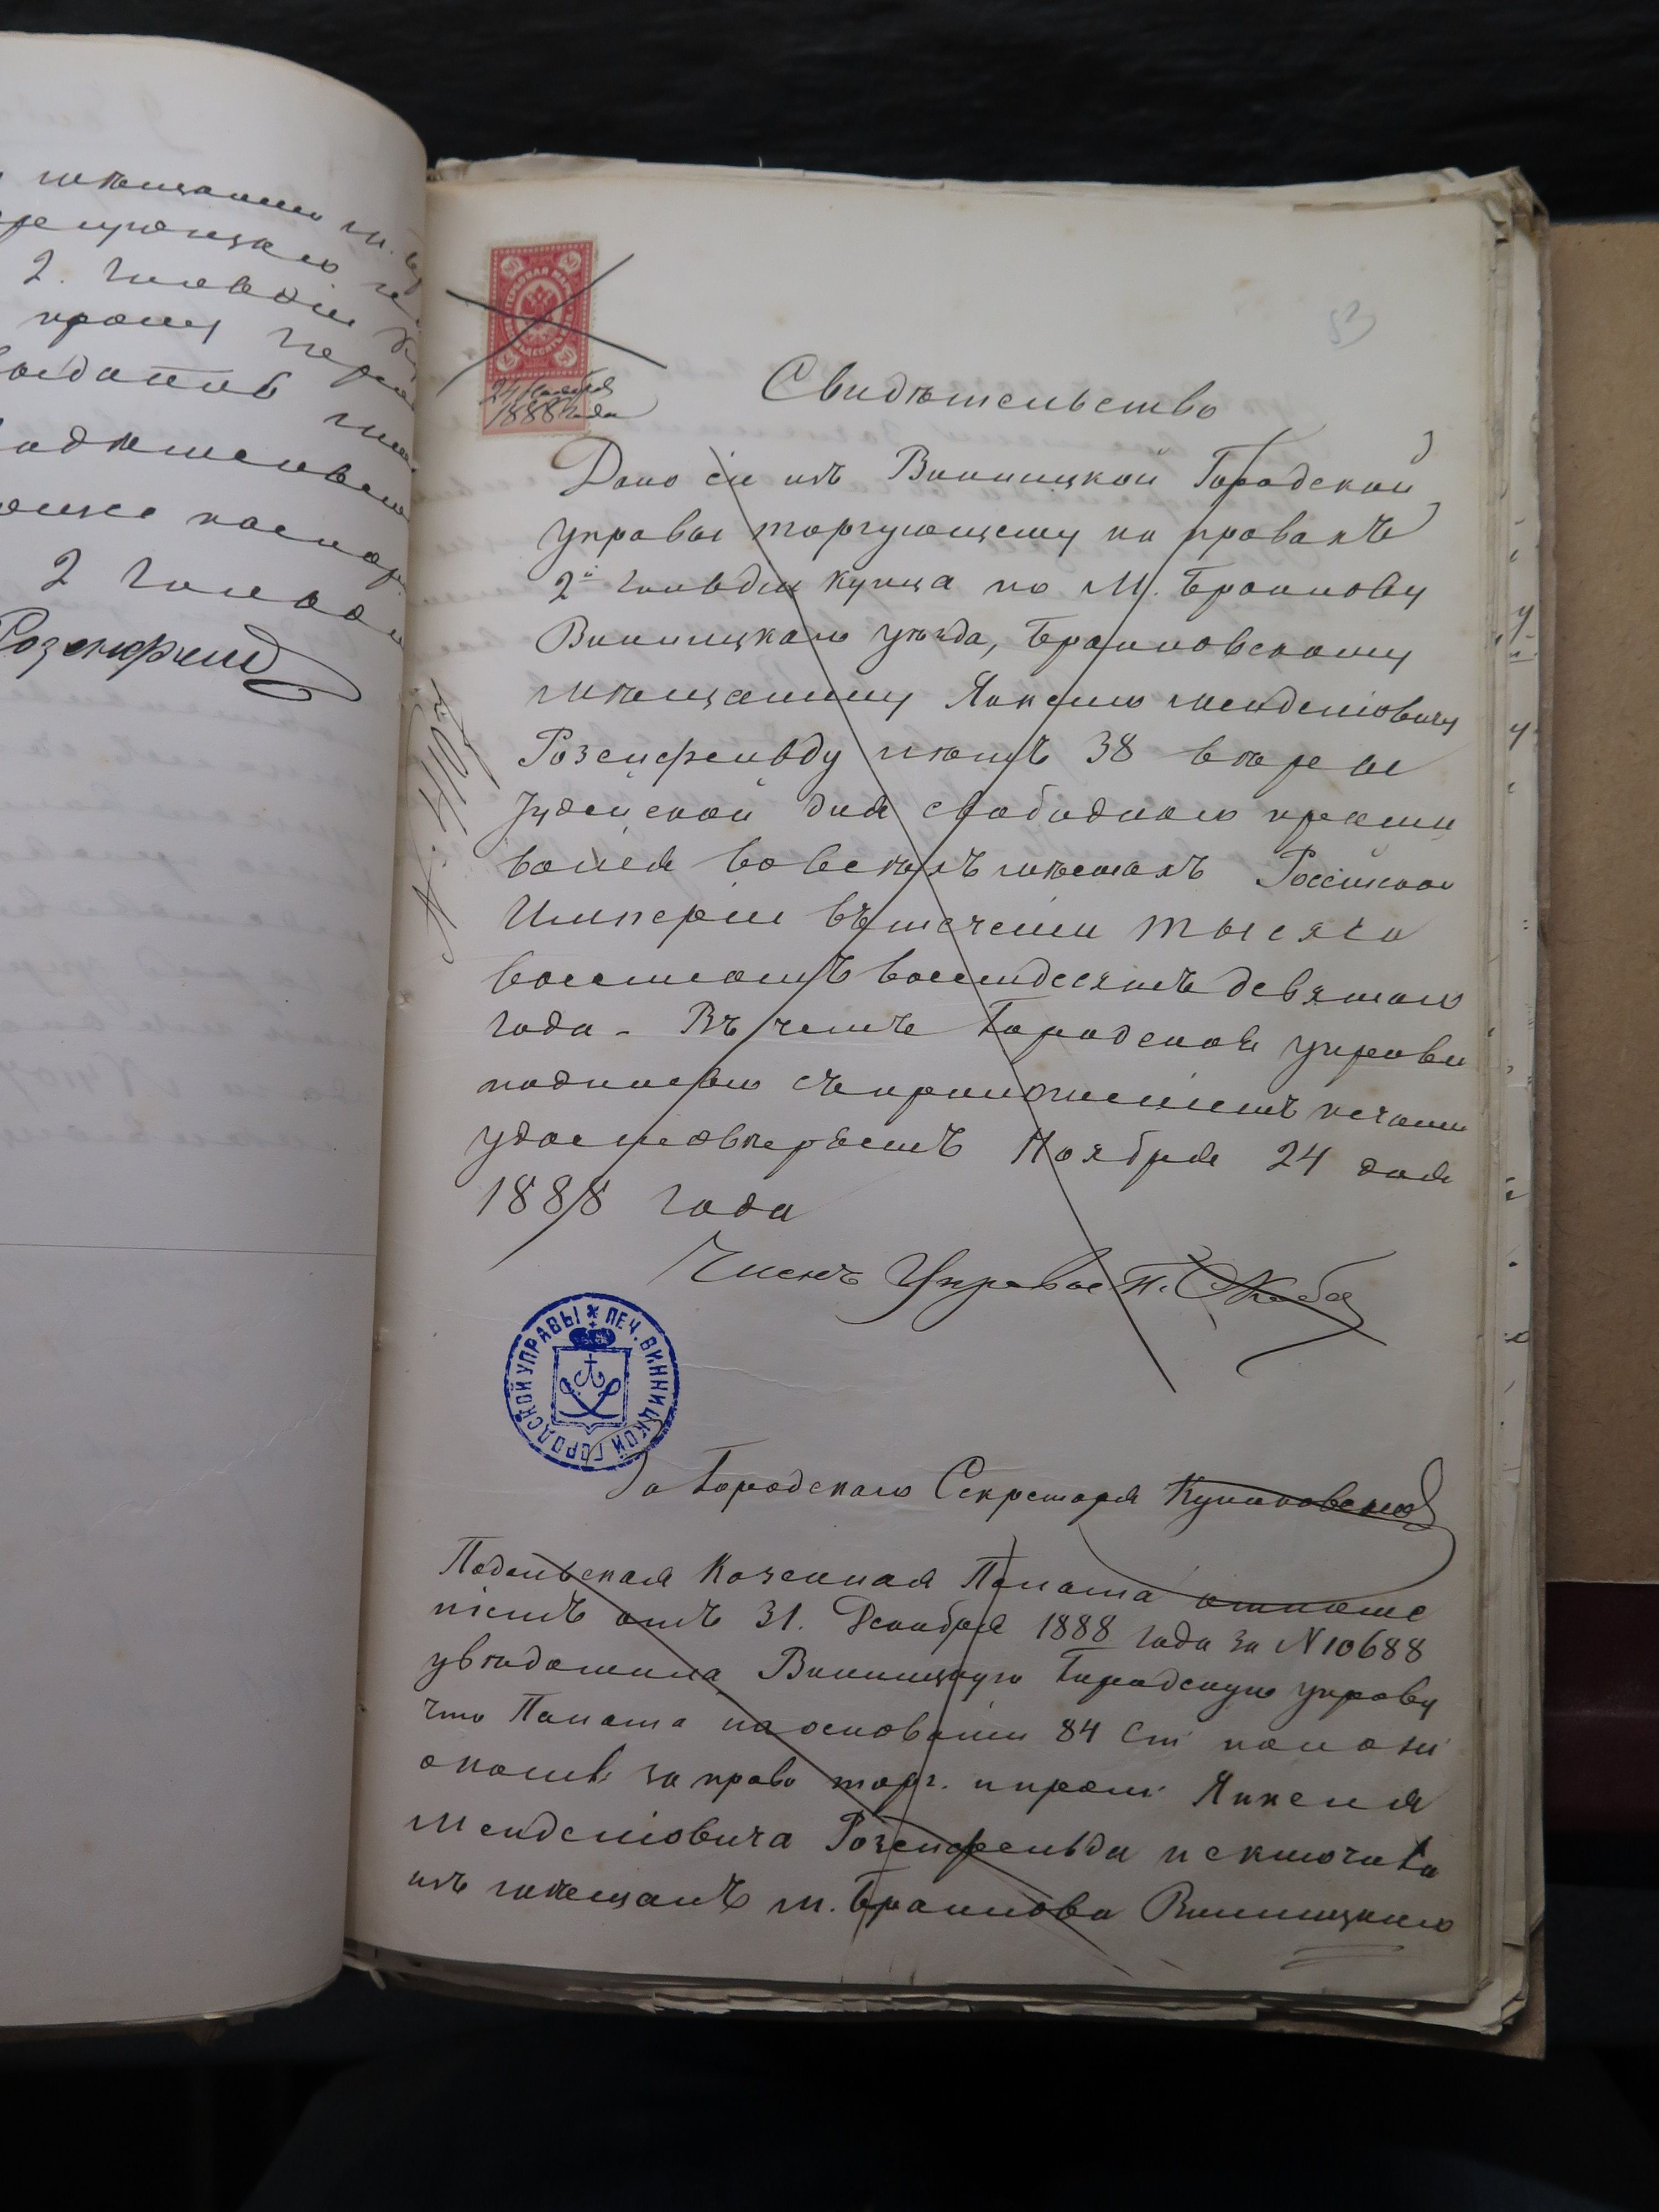 мѣщанин м.
2. гильдіи
прошу
2 гильдіи
Розенфельд
53
24 Ноября
1888 года
Свидѣтельство
Дано сіе изъ Винницкой Городской
управы торгующему на правахъ
2й гильдіи купца по м. Браилову
Винницкаго уѣзда, Браиловскому
мѣщанину Янкелю Менделіовичу
Розенфельду лѣтъ 38 вѣры
Іудейской для свободнаго прожи
ванія во всѣхъ мѣстахъ Россійской
Имперіи въ теченіи тысяча
восемьсотъ восемдесятъ девятаго
года - Въ чемъ Городская управа
подписью съ приложеніемъ печати
удостовѣряетъ Ноября 24 дня
1888 года
Членъ Управы
ПЕЧ. ВИННИЦКОЙ ГОРОДСКОЙ УПРАВЫ
За Городскаго Секретаря
Подольская Казенная Палата отноше
ніемъ отъ 31. Декабря 1888 года за N 10688
увѣдомила Винницкую Городскую управу
что Палата на основаніи 84 ст полож
о пошл: за право торг. и пром: Янкеля
Менделіовича Розенфельда исключила
изъ мѣщанъ м. Браилова Винницкаго